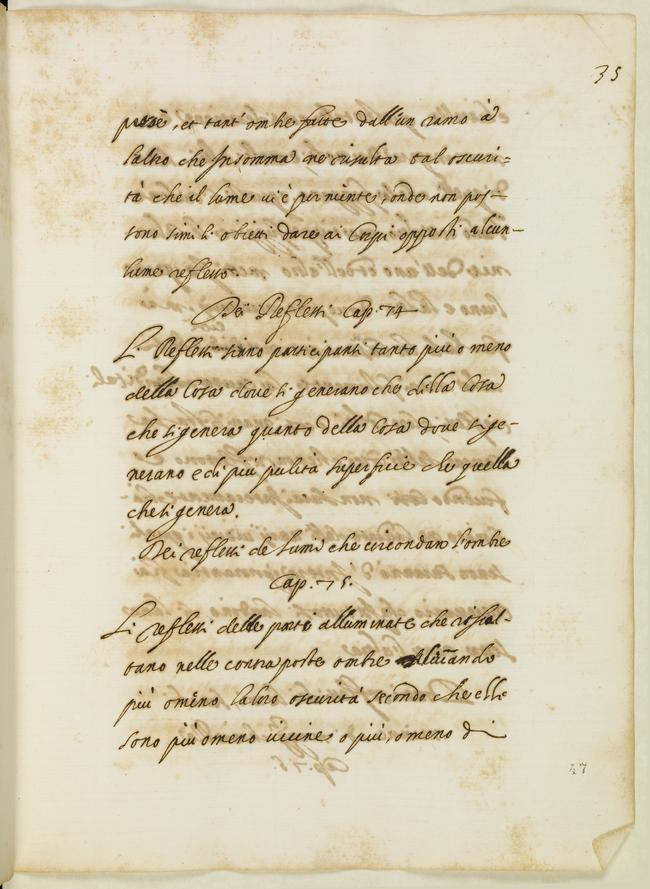 35
et tant' ombre fatte dall'un ramo à
l'altro che Insomma ne risulta tal oscuri=
tà che il lume vi è per niente, onde non pos=
sono simili obietti dare ai Corpi opposti alcun=
lume reflesso.
Dei Reflessi Cap. 74
Li Reflessi siano participanti tanto più o meno
della Cosa dove si generano che della Cosa
che si genera quanto della Cosa dove si ge=
nerano è di più pulita superficie che quella
che si genera.
Dei reflessi de lumi che circondan l'ombre
Cap. 75.
Li reflessi delle parti alluminate che risal=
tano nelle contraposte ombre
più o meno la loro oscurità secondo che elle
sono più o meno vicine o più, o meno di
47